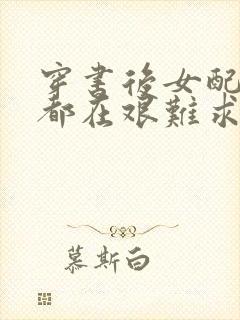 穿書後女配
都在艱難求
慕斯白